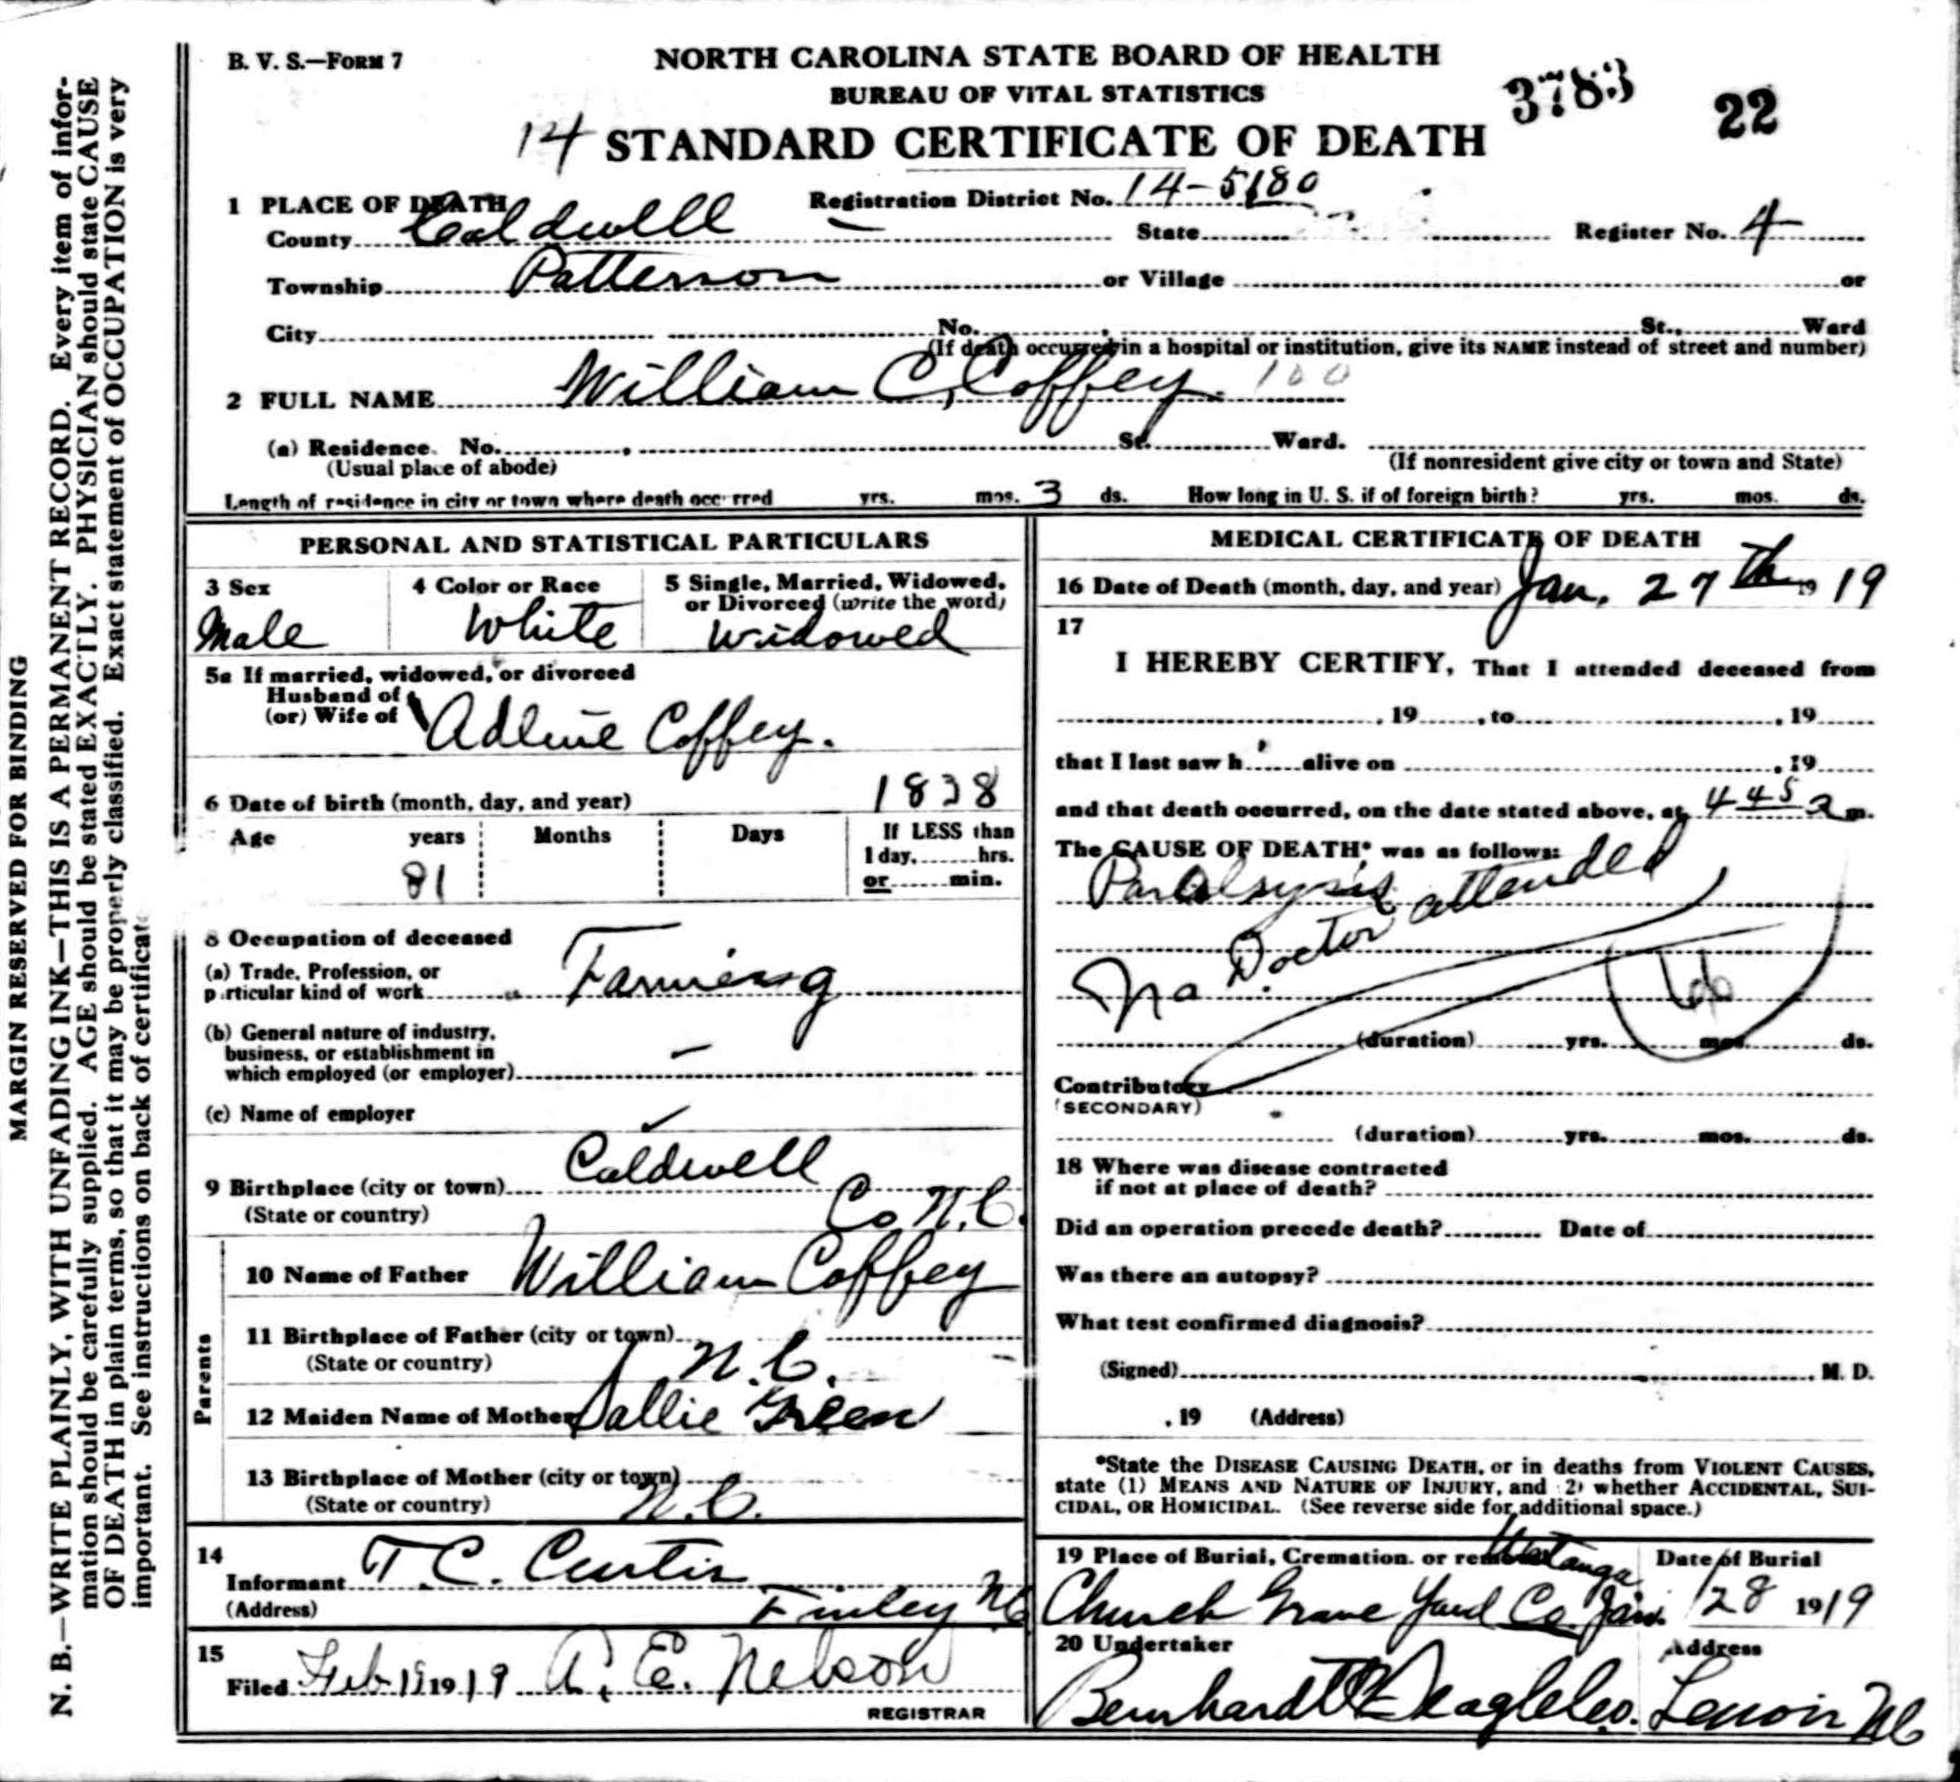 B. V. S.—FORM 7
NORTH CAROLINA STATE BOARD OF HEALTH
BUREAU OF VITAL STATISTICS
3783 22
14 STANDARD CERTIFICATE OF DEATH
1 PLACE OF DEATH Registration District No. 14-5180
County Caldwell State Register No. 4
Township Patterson or Village or
City No. St., Ward
(If death occurred in a hospital or institution, give its NAME instead of street and number)
2 FULL NAME William C, Coffey. 100
(a) Residence. No. , St. Ward.
(Usual place of abode) (If nonresident give city or town and State)
Length of residence in city or town where death occurred yrs. mos. 3 ds. How long in U. S. if of foreign birth? yrs. mos. ds.
PERSONAL AND STATISTICAL PARTICULARS
3 Sex 4 Color or Race 5 Single, Married, Widowed, or Divorced (write the word)
Male White Widowed
5a If married, widowed, or divorced
Husband of
(or) Wife of Adline Coffey.
6 Date of birth (month, day, and year) 1838
Age years Months Days If LESS than
1 day, hrs.
81 or min.
8 Occupation of deceased
(a) Trade, Profession, or
particular kind of work Farmering
(b) General nature of industry,
business, or establishment in
which employed (or employer) —
(c) Name of employer
9 Birthplace (city or town) Caldwell
(State or country) Co N.C.
Parents
10 Name of Father William Coffey
11 Birthplace of Father (city or town)
(State or country) N.C.
12 Maiden Name of Mother Sallie Green
13 Birthplace of Mother (city or town)
(State or country) N.C.
14
Informant T. C. Curtis
(Address) Finley NC
15
Filed Feb 19 1919 A. E. Nelson
REGISTRAR
MEDICAL CERTIFICATE OF DEATH
16 Date of Death (month, day, and year) Jan. 27th 19 19
17
I HEREBY CERTIFY, That I attended deceased from
, 19 , to , 19
that I last saw h alive on , 19
and that death occurred, on the date stated above, at 445 a m.
The CAUSE OF DEATH* was as follows:
Paralsysis
No Doctor attended
66
(duration) yrs. mos. ds.
Contributory
(SECONDARY)
(duration) yrs. mos. ds.
18 Where was disease contracted
if not at place of death?
Did an operation precede death? Date of
Was there an autopsy?
What test confirmed diagnosis?
(Signed) , M. D.
, 19 (Address)
*State the DISEASE CAUSING DEATH, or in deaths from VIOLENT CAUSES,
state (1) MEANS AND NATURE OF INJURY, and (2) whether ACCIDENTAL, SUI-
CIDAL, OR HOMICIDAL. (See reverse side for additional space.)
19 Place of Burial, Cremation. or removal Date of Burial
Watauga
Church Grave Yard Co. Jan. 28 1919
20 Undertaker Address
Bernhardt Seagle Co. Lenoir NC
MARGIN RESERVED FOR BINDING
N. B.—WRITE PLAINLY, WITH UNFADING INK—THIS IS A PERMANENT RECORD. Every item of infor-
mation should be carefully supplied. AGE should be stated EXACTLY. PHYSICIAN should state CAUSE
OF DEATH in plain terms, so that it may be properly classified. Exact statement of OCCUPATION is very
important. See instructions on back of certificate